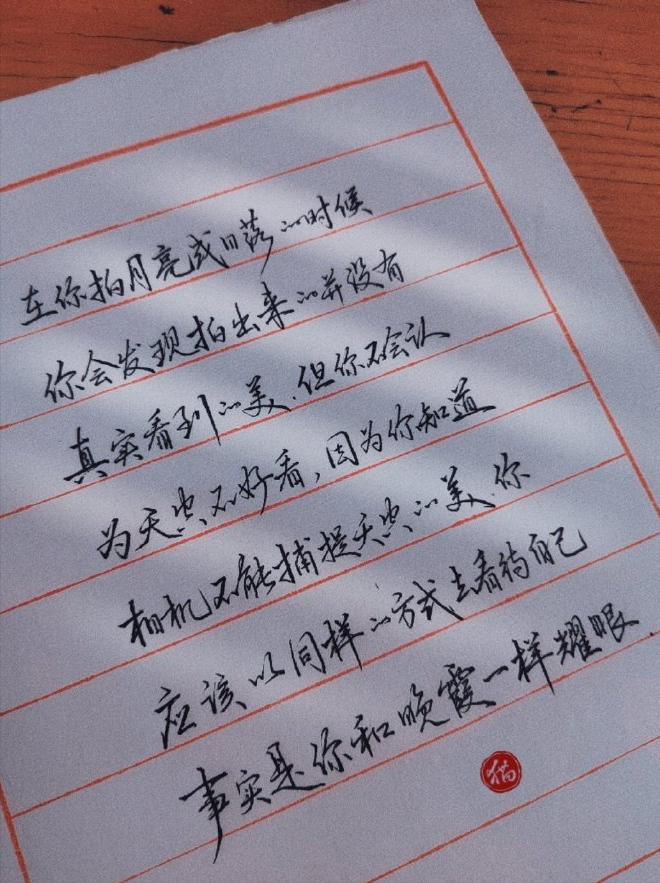 在你拍月亮或日落的时候
你会发现拍出来的并没有
真实看到的美.但你不会认
为天空不好看,因为你知道
相机不能捕捉天空的美.你
应该以同样的方式去看待自己
事实是你和晚霞一样耀眼.
猫